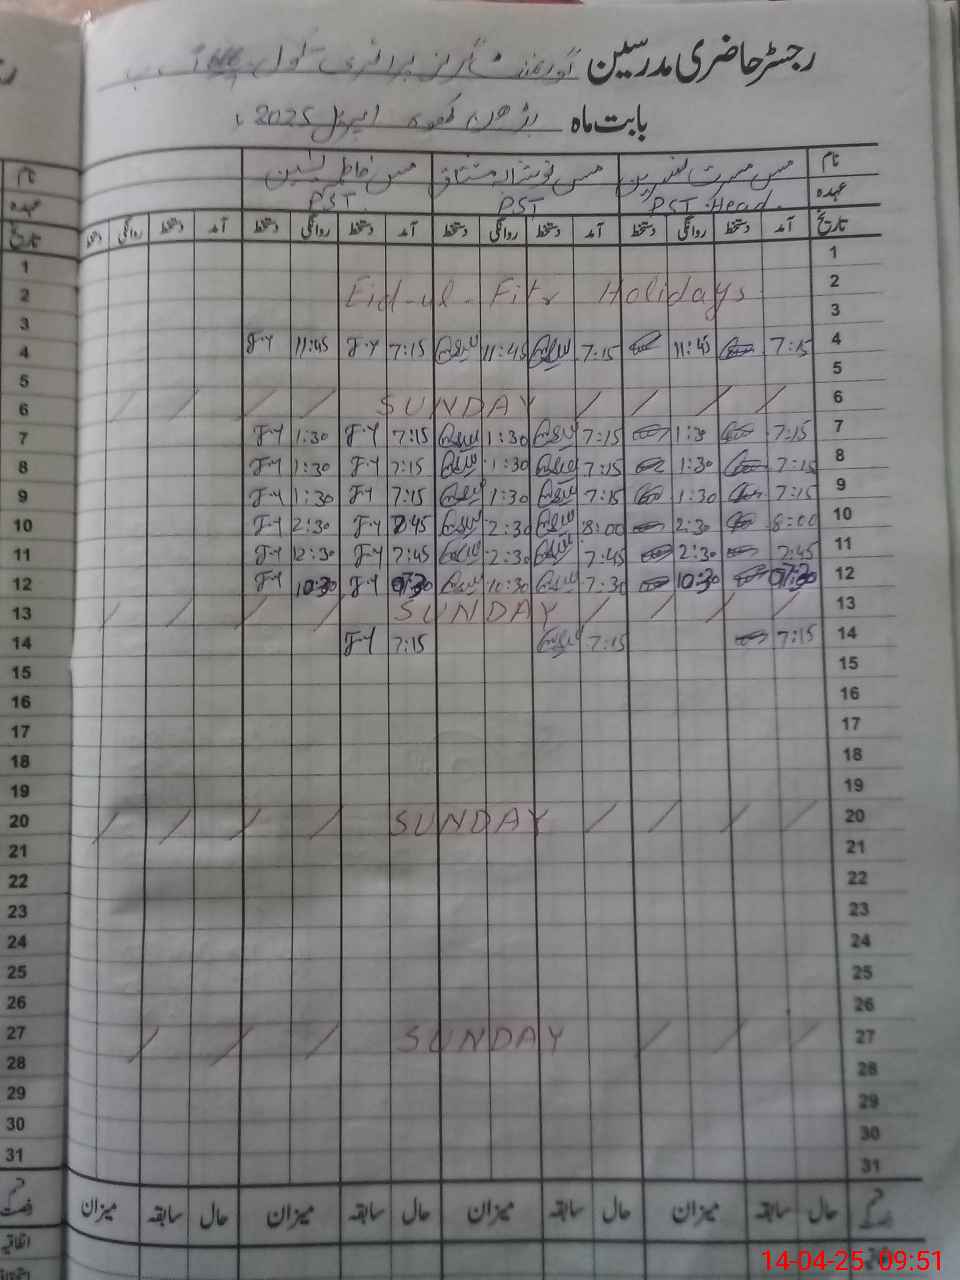 رجسٹر حاضری مدرسین گورنمنٹ گرلز پرائمری سکول
بابت ماہ اپریل 2025
نام مس مسرت نسرین مس نوشابہ مشتاق مس
عہدہ PST Head. PST PST.
تاریخ آمد دستخط روانگی دستخط آمد دستخط روانگی دستخط آمد دستخط روانگی دستخط آمد دستخط روانگی دستخط تاریخ
1 1
2 Eid-ul-Fitr Holidays 2
3 3
4 7:15 11:45 7:15 11:45 7:15 F.Y 11:45 F.Y 4
5 5
6 SUNDAY 6
7 7:15 1:30 7:15 1:30 7:15 F.Y 1:30 F.Y 7
8 7:15 1:30 7:15 1:30 7:15 F.Y 1:30 F.Y 8
9 7:15 1:30 7:15 1:30 7:15 F.Y 1:30 F.Y 9
10 8:00 2:30 8:00 2:30 F.Y 2:30 F.Y 10
11 7:45 2:30 7:45 2:30 7:45 F.Y F.Y 11
12 07:30 10:30 7:30 10:30 07:30 F.Y 10:30 F.Y 12
13 SUNDAY 13
14 7:15 7:15 7:15 F.Y 14
15 15
16 16
17 17
18 18
19 19
20 SUNDAY 20
21 21
22 22
23 23
24 24
25 25
26 26
27 SUNDAY 27
28 28
29 29
30 30
31 31
حال سابقہ میزان حال سابقہ میزان حال سابقہ میزان
14-04-25 09:51